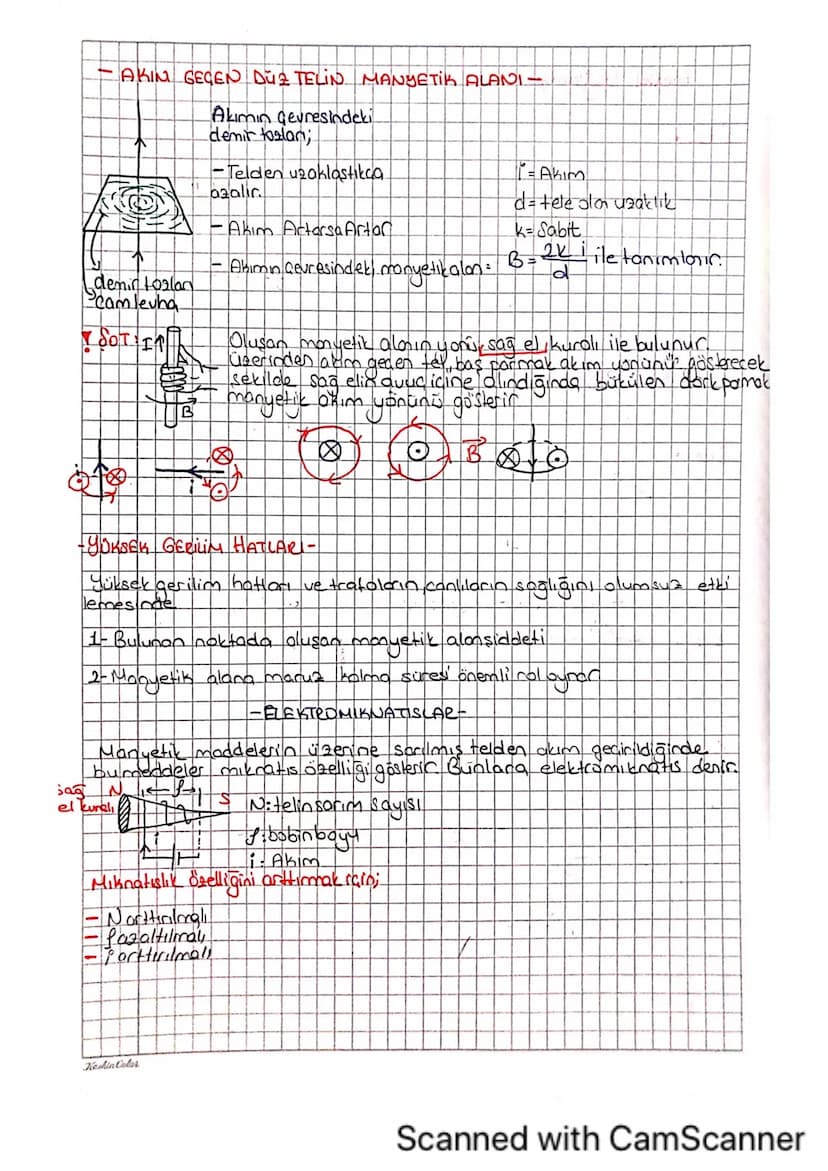 - AKIM GEÇEN DÜZ TELİN MANYETİK ALANI -
Akımın çevresindeki
demir tozları;
- Telden uzaklaştıkca
azalır.
- Akım Artarsa Artar
- Akımın çevresindeki manyetik alan:
i = Akım
d = tele olan uzaklık
k = Sabit
B = 2k i / d ile tanımlanır.
demir tozları
cam levha
! NOT: I↑
B
Oluşan manyetik alanın yönü, sağ el kuralı ile bulunur.
üzerinden akım geçen tel, baş parmak akım yönünü gösterecek
şekilde sağ elin avuç içine alındığında bükülen dört parmak
manyetik akım yönünü gösterir
i
i
B
-YÜKSEK GERİLİM HATLARI-
Yüksek gerilim hatları ve trafoların, canlıların sağlığını olumsuz etki
lemesinde
1- Bulunan noktada oluşan manyetik alan şiddeti
2- Manyetik alana maruz kalma süresi önemli rol oynar
-ELEKTROMIKNATISLAR-
Manyetik maddelerin üzerine sarılmış telden akım geçirildiğinde
bu meddeler mıknatıs özelliği gösterir. Bunlara elektromıknatıs denir.
sağ
el kuralı
N
l
S
i
N: telin sarım sayısı
l: bobin boyu
i: Akım
Mıknatıslık özelliğini arttırmak için;
- N arttırılmalı
- l azaltılmalı
- i arttırılmalı
Keskin Color
Scanned with CamScanner